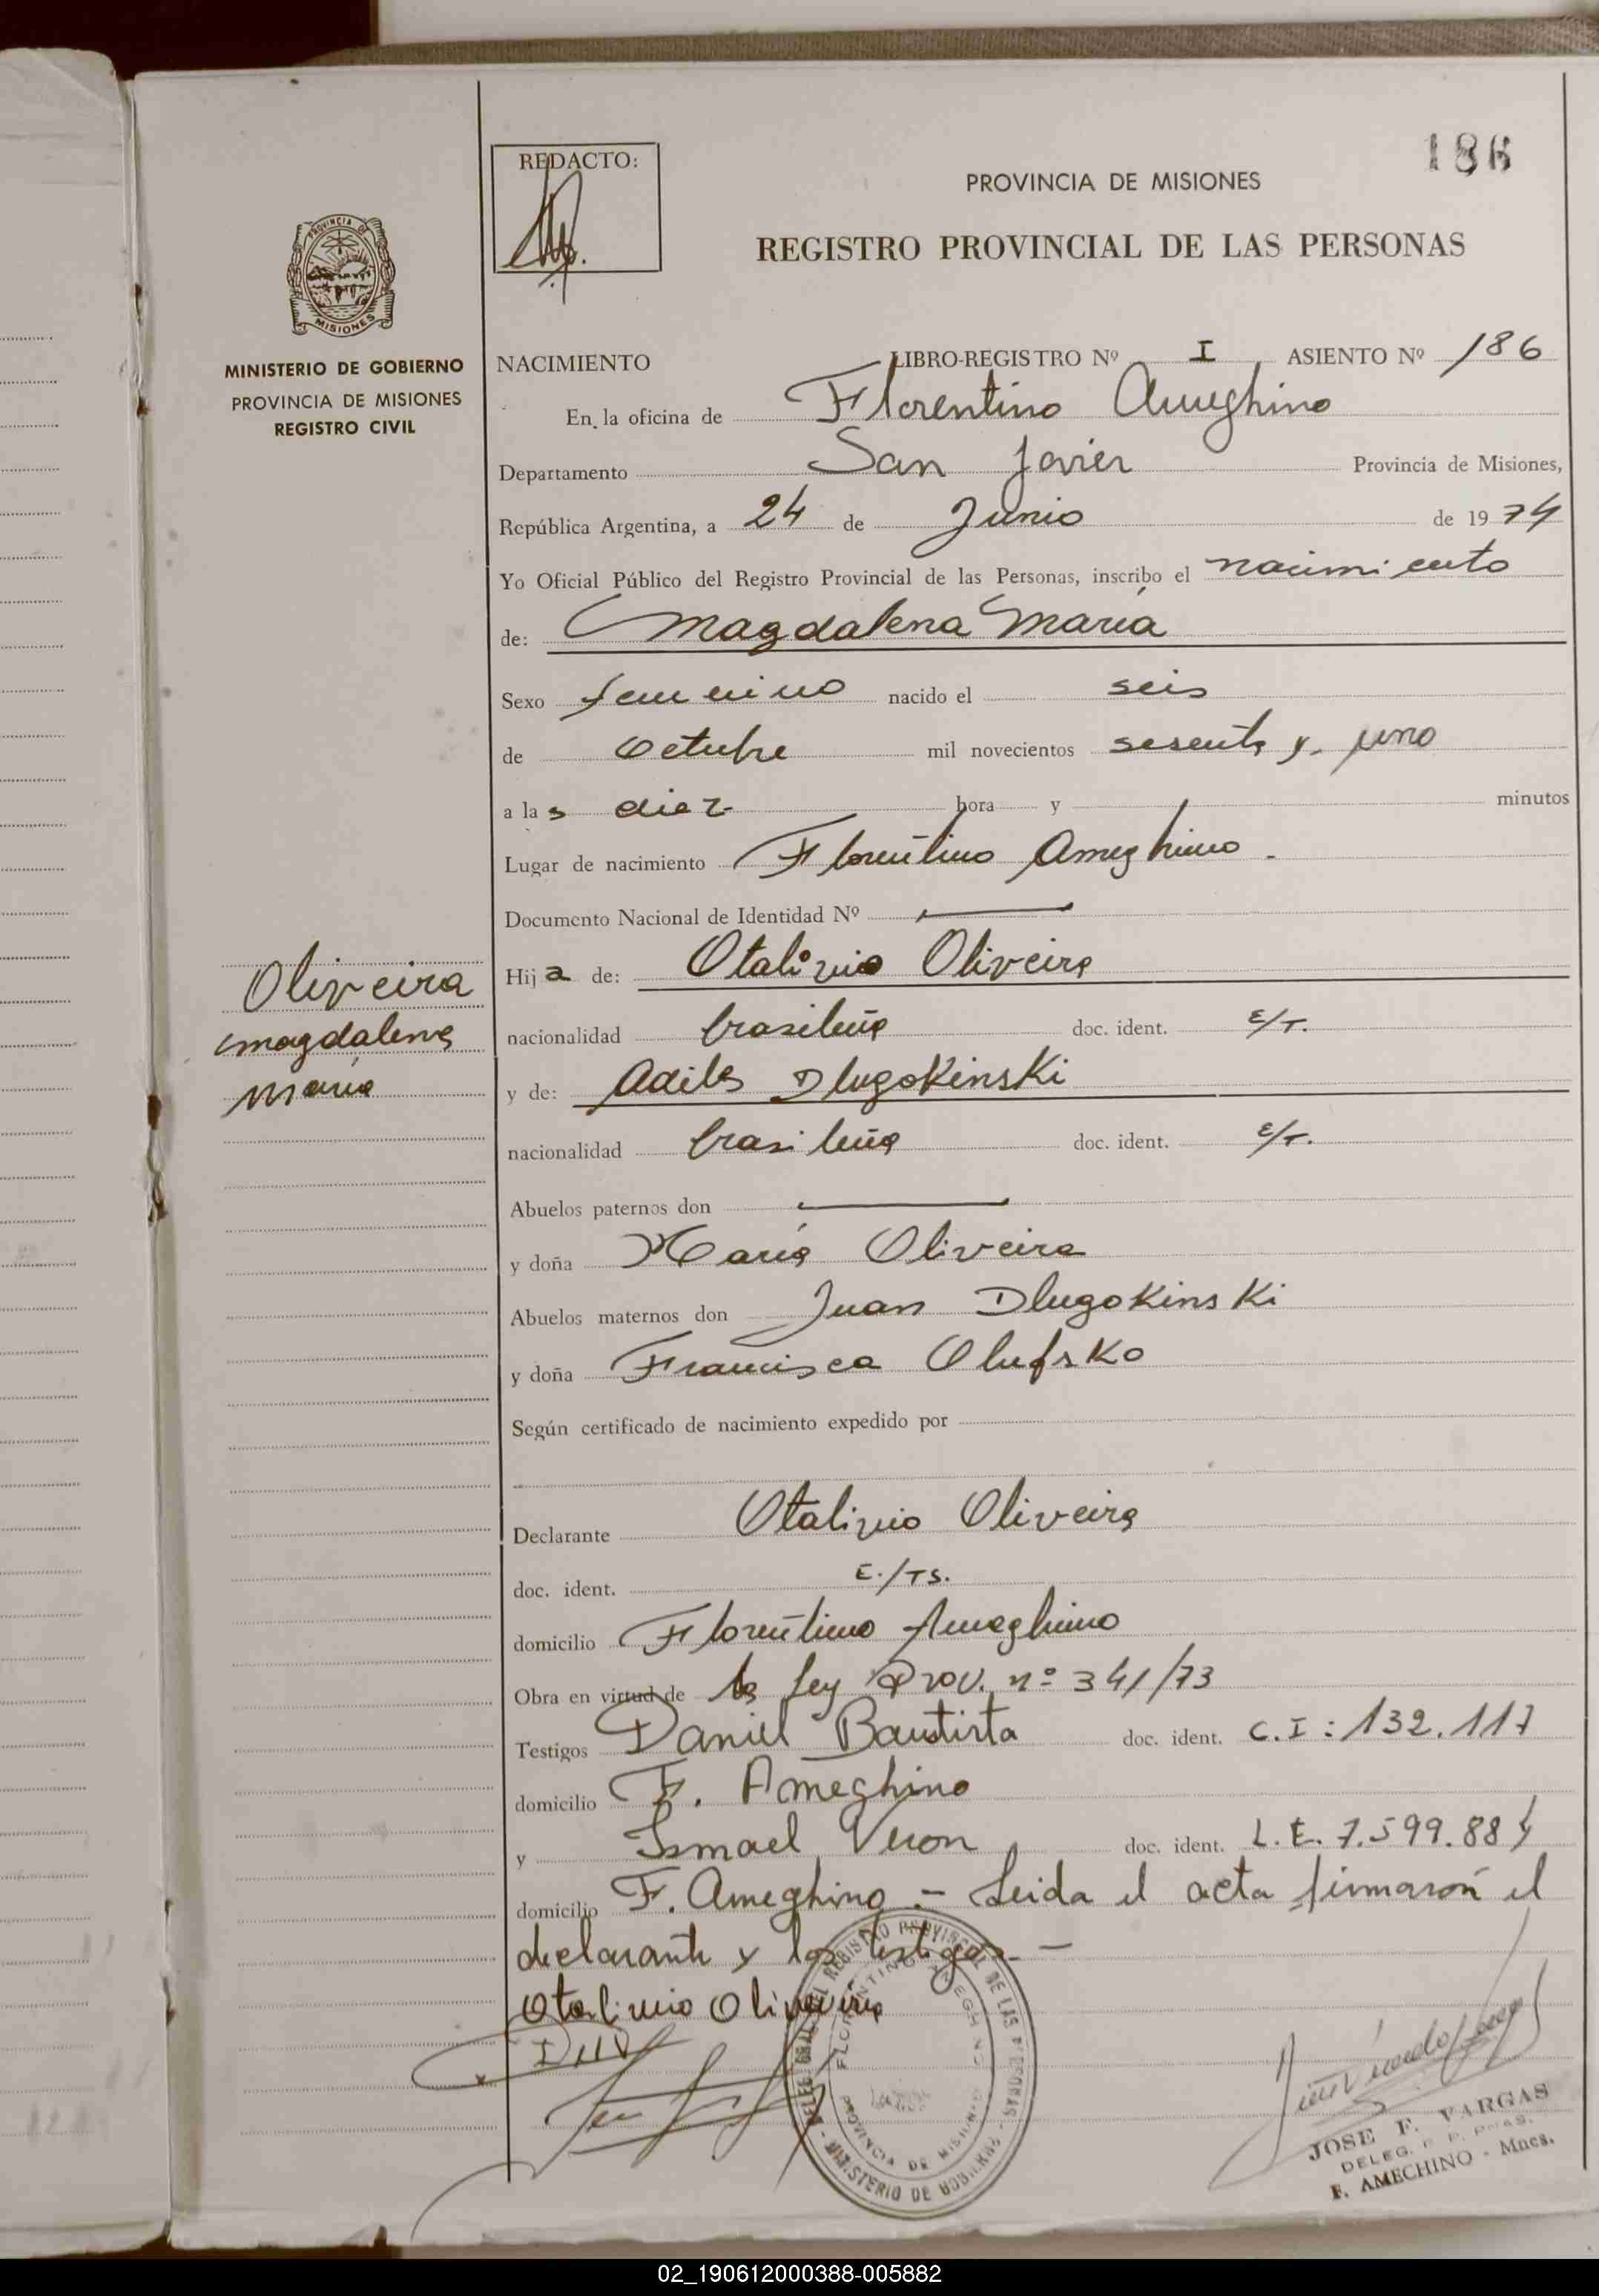 186
REDACTO:
PROVINCIA DE MISIONES
REGISTRO PROVINCIAL DE LAS PERSONAS
PROVINCIA DE
MISIONES
MINISTERIO DE GOBIERNO
PROVINCIA DE MISIONES
REGISTRO CIVIL
NACIMIENTO LIBRO-REGISTRO Nº I ASIENTO Nº 186
En la oficina de Florentino Ameghino
Departamento San Javier Provincia de Misiones,
República Argentina, a 24 de Junio de 1974
Yo Oficial Público del Registro Provincial de las Personas, inscribo el nacimiento
de: Magdalena María
Sexo femenino nacido el seis
de Octubre mil novecientos sesenta y uno
a las diez hora y minutos
Lugar de nacimiento Florentino Ameghino.
Documento Nacional de Identidad Nº
Oliveira
Magdalena
María
Hija de: Otalivio Oliveira
nacionalidad brasileña doc. ident. E/T.
y de: Adiles DlugoKinsKi
nacionalidad brasileña doc. ident. E/T.
Abuelos paternos don
y doña María Oliveira
Abuelos maternos don Juan DlugoKinsKi
y doña Francisca
Según certificado de nacimiento expedido por
Declarante Otalivio Oliveira
doc. ident. E./TS.
domicilio Florentino Ameghino
Obra en virtud de la Ley Prov. nº 341/73
Testigos Daniel Bautista doc. ident. C.I: 132.117
domicilio F. Ameghino
y Ismael Veron doc. ident. L.E. 7.599.884
domicilio F. Ameghino - Leida el acta firmarón el
declarante y los testigos. -
Otalivio Oliveira
DELEG. GRAL. DEL REGISTRO PROVINCIAL DE LAS PERSONAS - MINISTERIO DE GOBIERNO
FLORENTINO AMEGHINO PROVINCIA DE MISIONES
JOSE F. VARGAS
DELEG.
F. AMECHINO - Mnes.
02_190612000388-005882